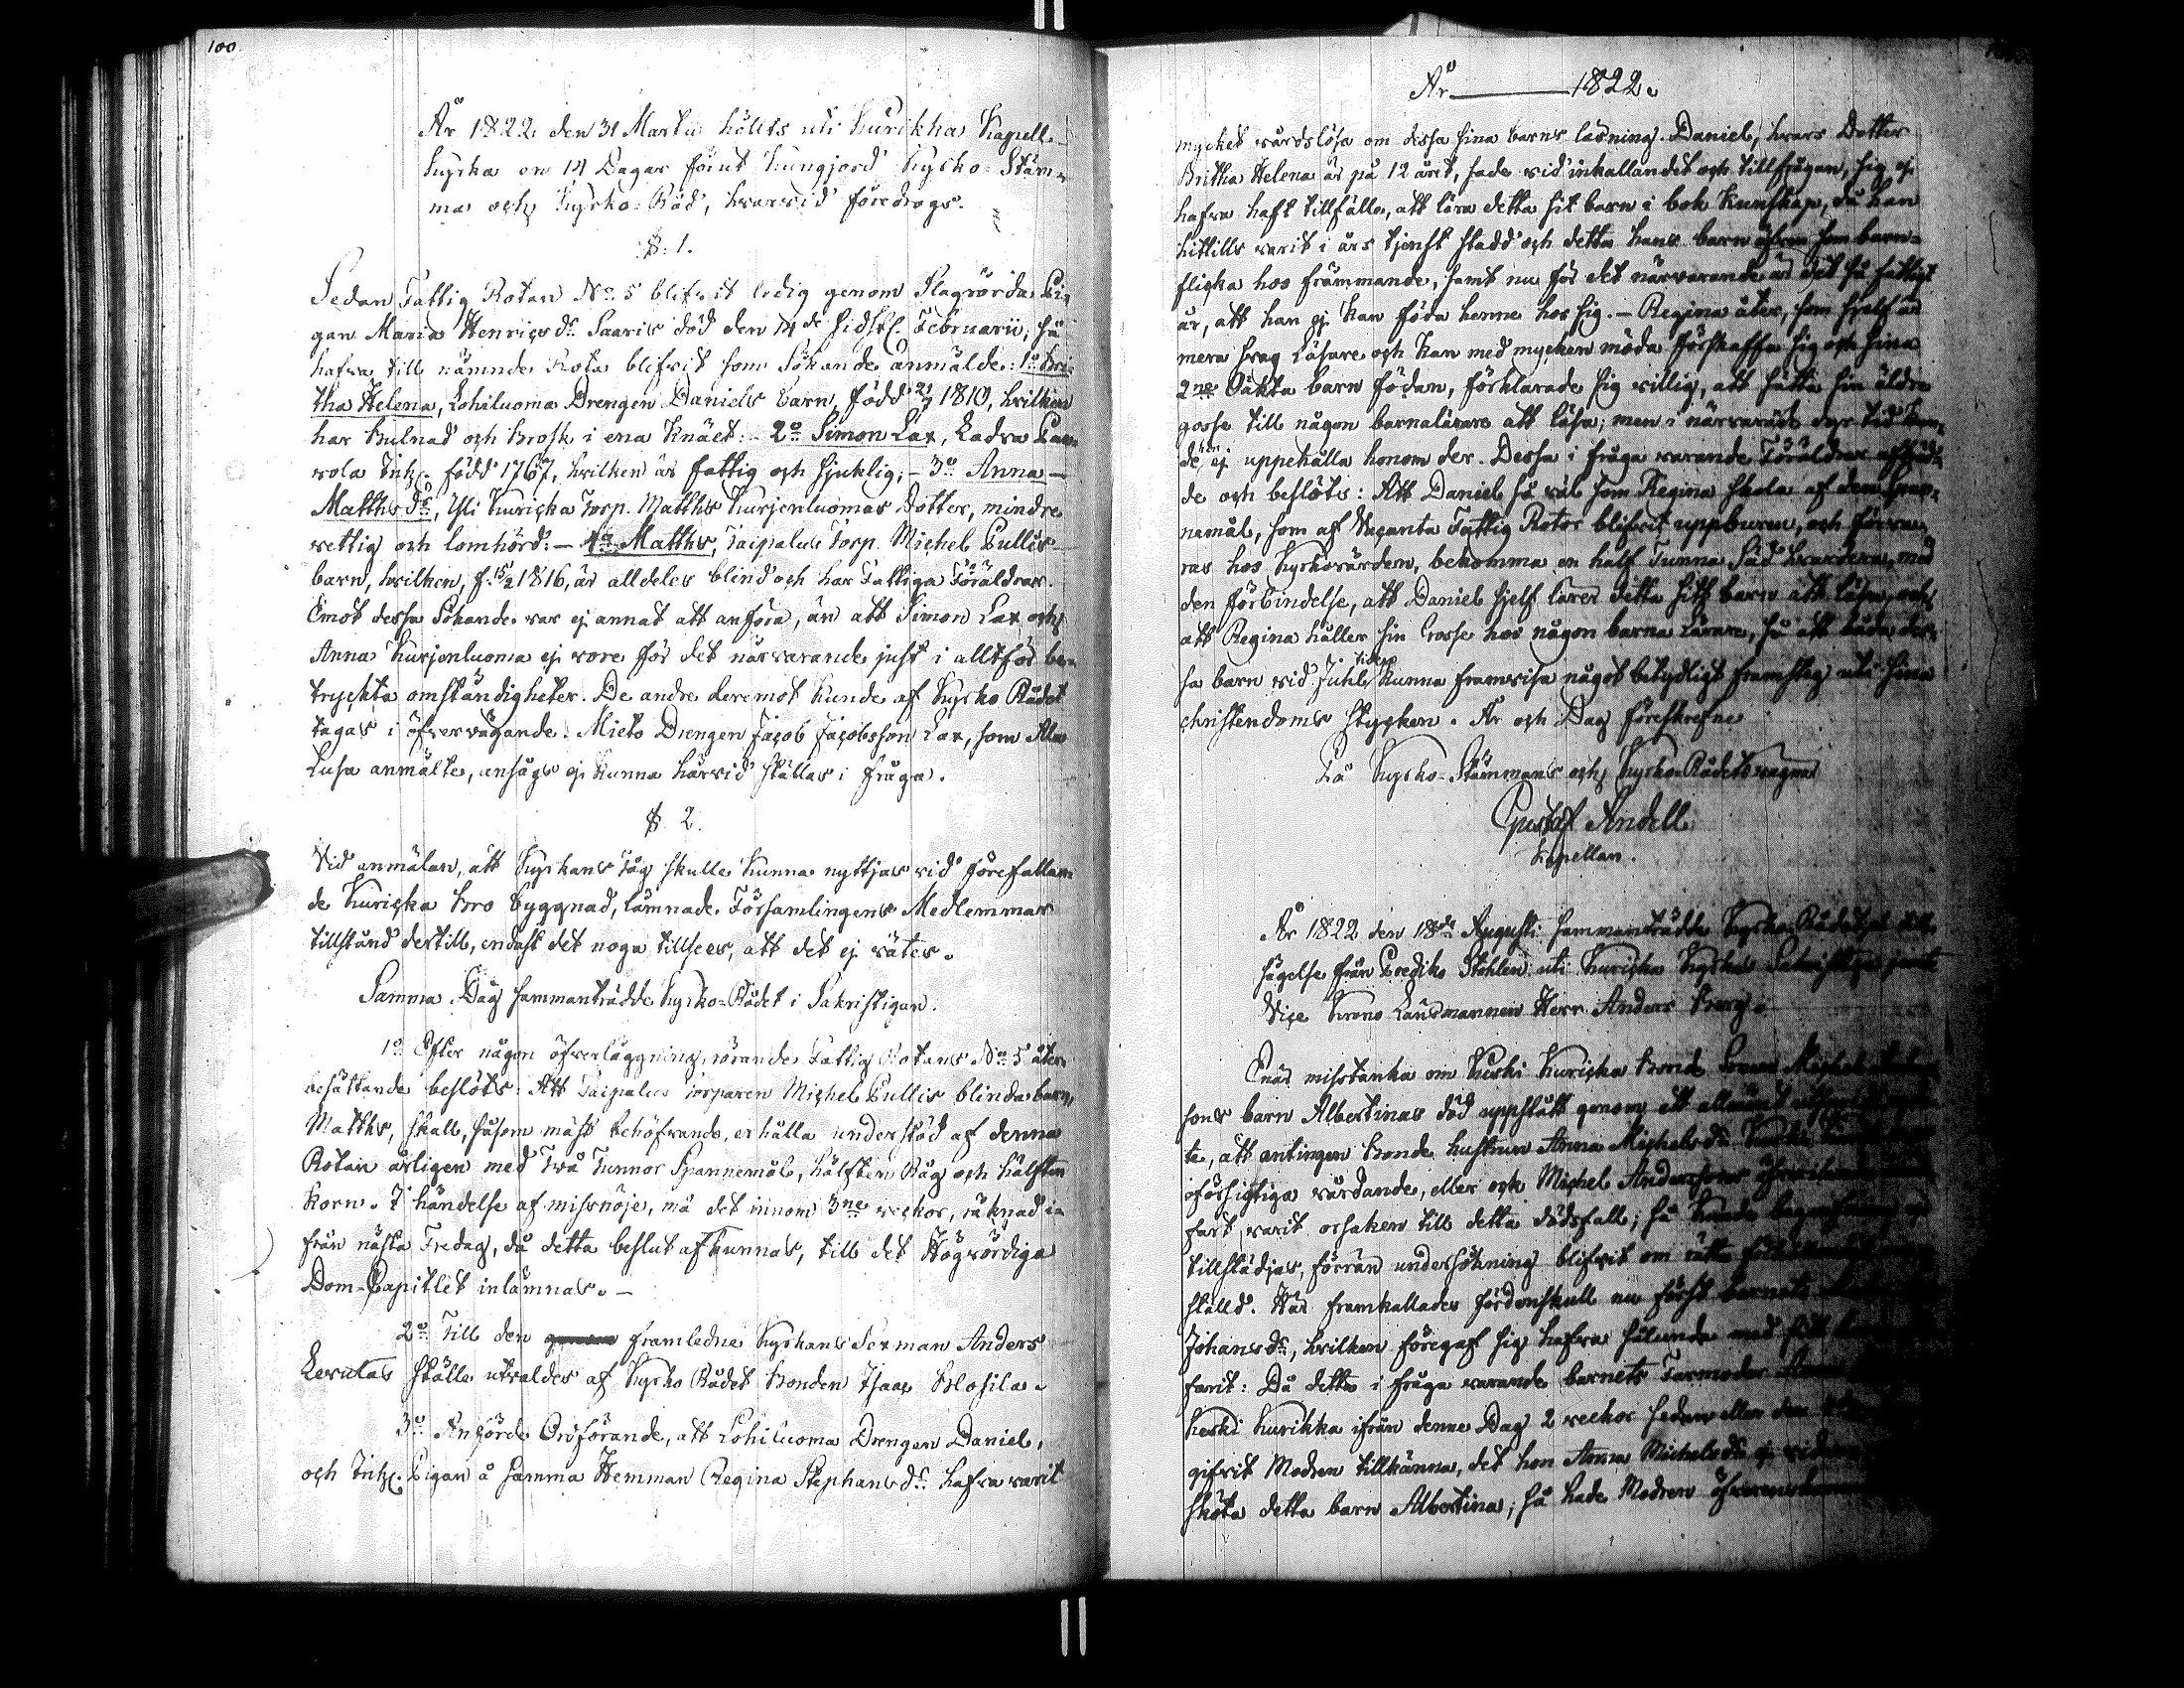 100
År 1822 den 31 Martii hölts uti Kurikka Kapell-
kyrka en 14 Dagar förut kungjord Kyrko-Stäm-
ma och Kyrko-Råd, hvarvid föredrogs.
§. 1.
Sedan Fattig Rotan No 5 blifvit ledig genom Slagrörda Pi-
gan Maria Henricsdr Saaris död den 14de sidstl. Februarii; så
hafva till nämnde Rota blifvit som Sökande anmälde: 1o Bri-
tha Helena, Lohiluoma Drengen Daniels barn, född 21/7 1810, hvilken
har bulnad och brosk i ena knäet: - 2o Simon Lax, Ladva Pan-
vola Inh. född 1767, hvilken är fattig och sjuklig; - 3o Anna
Matthsdr, Yli Kuricka Torp. Matths Kurjenluomas Dotter, mindre
vettig och lomhörd: - 4o Matths, Taipalus Torp. Michel Pullis
barn, hvilken, f. 15/2 1816, är alldeles blind och har Fattiga Föräldrar.
Emot dessa Sökande var ej annat att anföra, än att Simon Lax och
Anna Kurjenluoma ej vore för det närvarande just i alltför be-
tryckta omständigheter. De andre deremot kunde af Kyrko Rådet
tagas i öfvervägande. Mieto Drengen Jacob Jacobsson Lax, som
anmälte, ansågs ej kunna härvid ställas i fråga.
§. 2.
Vid anmälan, att Kyrkans Tåg skulle kunna nyttjas vid förefallan-
de Kuricka Bro byggnad, lämnade Församlingens Medlemmar
tillstånd dertill, endast det noga tillsees, att det ej vätes.
Samma Dag sammanträdde Kyrko-Rådet i Sakristigan.
1o Efter någon öfverläggning, rörande Fattig Rotans No 5 åter-
besättande beslöts: Att Taipalus Torparen Michel Pullis blinda barn,
Matths, skall, såsom mäst behöfvande, erhålla understöd af denna
Rotan årligen med Två Tunnor Spannemål, hälften Råg och hälften
Korn. I händelse af missnöje, må det innom 3ne veckor, räknad i-
från nästa Fredag, då detta beslut afkunnas, till det Högvördiga
Dom-Capitlet inlämnas. -
2o Till den framledne Kyrkans Sexman Anders
Levulas ställe utvaldes af Kyrko Rådet Bonden Isaac Blosila.
3o Anförde Ordförande, att Lohiluoma Drengen Daniel,
och Inh. Pigan å samma Hemman Regina Stephansdr hafva varit
År 1822.
mycket vårdslösa om dessa sina barns läsning. Daniel, hvars Dotter
Britha Helena är på 12 året, sade vid inkallandet och tillfrågan, sig ej
hafva haft tillfälle, att lära detta sit barn i bok kunskap, då han
hittills varit i års tjenst stadd och detta hans barn äfven som barn-
flicka hos främmande, samt nu för det närvarande är det så fattigt
år, att han ej kan föda henne hos sig. - Regina åter, som sjelf är
mera svag Läsare och kan med mycken möda förskaffa sig och sina
2ne Oäkta barn födan, förklarade sig villig, att sätta sin äldre
gosse till någon barnalärare att läsa; men i närvarande dyr tid kun-
de hon ej uppehålla honom der. Dessa i fråga varande Föräldrar
de och beslöts: Att Daniel så väl som Regina skola af den Span-
nemål, som af Vacanta Fattig Rotor blifvit uppburen, och förva-
ras hos Kyrkovärden, bekomma en half Tunna Säd hvardera, med
den förbindelse, att Daniel sjelf lärer detta sitt barn att läsa, och
att Regina håller sin Gosse hos någon barna Lärare, så att båda des-
sa barn vid Juhl tiden kunna framvisa något betydligt framsteg uti sina
christendoms stycken. År och Dag föreskrefne
På Kyrko-Stämmans och Kyrko-Rådets vägnar
Gustaf Andell
Kapellan.
År 1822 den 18de Augusti sammanträdde Kyrko-Rådet
sägelse från Predikostohlen uti Kuricka Kyrkas Sakristiga jemte
Vice Krono Länsmannen Herr Anders Berg.
Enär misstanka om Kuski Kuricka Bonde Sonen Michel
sons barn Albertinas död uppstått genom ett allmänt
te, att antingen Bonde hustrun Anna Michelsdr Kuski
oförsigtiga vårdande, eller ock Michel Anderssons
fart varit orsaken till detta dödsfall; så kunde begrafning ej
tillstädjas, förrän undersökning blifvit om rätta
ställd. Här framkallades fördenskull nu först barnets
Johansdr, hvilken föregaf sig hafva sålunda med sitt
farit: Då detta i fråga varande barnets Farmoder
Kuski Kurikka ifrån denne Dag 2 veckor sedan eller den
gifvit Modren tillkänna, det hon Anna Michelsdr ej
sköta detta barn Albertina; så hade Modren